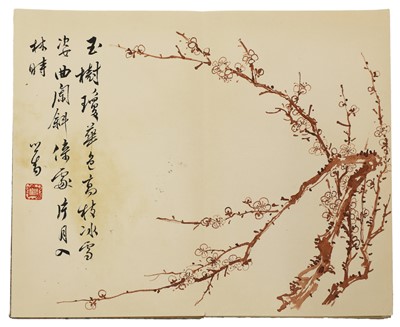 玉樹瓊華色高枝冰雪
姿曲闌斜倚處片月入
林時
心畬